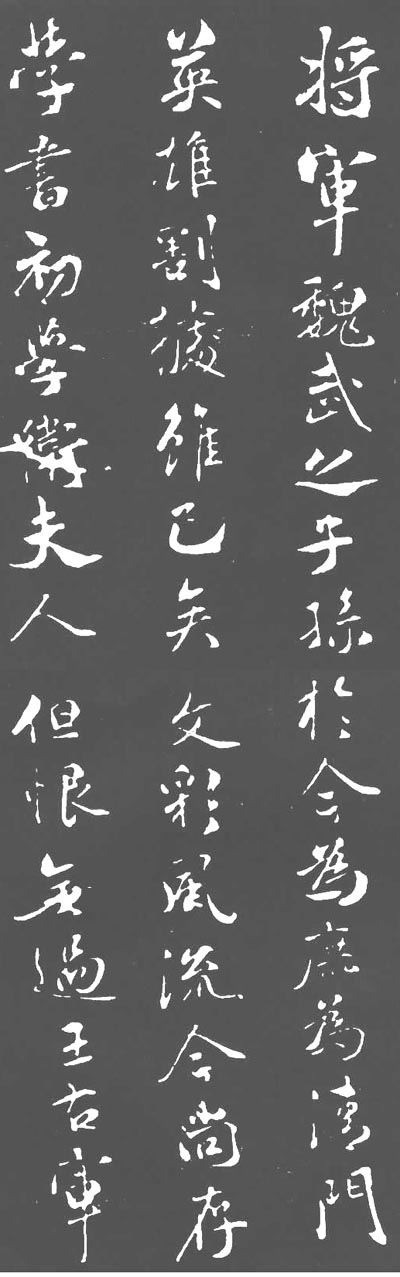 将軍魏武之子孫於今為庶為清門
英雄割據雖已矣文彩風流今尚存
學書初學衛夫人但恨無過王右軍